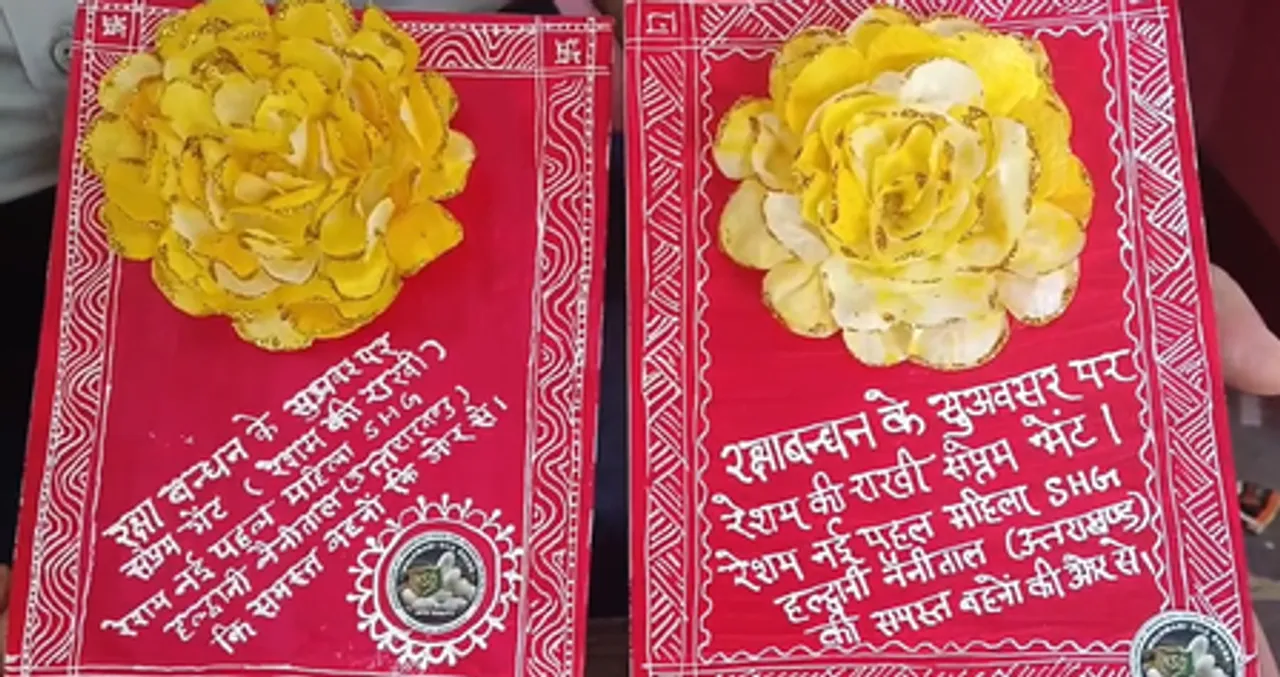 रक्षा बन्धन के सुअवसर पर
सप्रेम भेंट (रेशम की राखी)
रेशम नई पहल महिला SHG
हल्द्वानी नैनीताल (उत्तराखण्ड)
कि समस्त बहनों कि ओर से।
रक्षाबन्धन के सुअवसर पर
रेशम की राखी सप्रेम भेंट।
रेशम नई पहल महिला SHG
हल्द्वानी नैनीताल (उत्तराखण्ड)
की समस्त बहनों की ओर से।